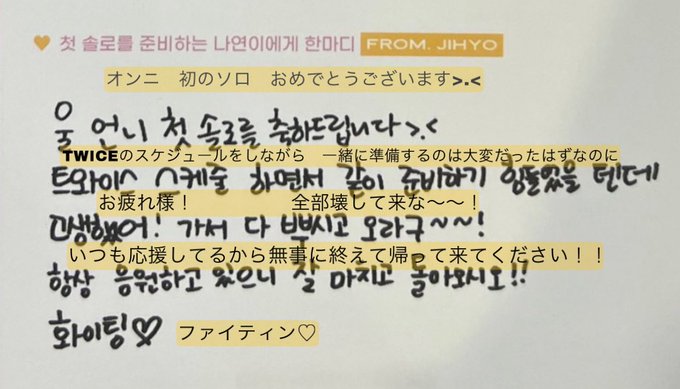 🧡 첫 솔로를 준비하는 나연이에게 한마디 FROM. JIHYO
オンニ 初のソロ おめでとうございます>.<
울 언니 첫 솔로를 축하드립니다>.<
TWICEのスケジュールをしながら 一緒に準備するのは大変だったはずなのに
트와이스 스케줄 하면서 같이 준비하기 힘들었을 텐데
お疲れ様! 全部壊して来な〜〜!
고생했어! 가서 다 뿌시고 오라구~~!
いつも応援してるから無事に終えて帰って来てください!!
항상 응원하고 있으니 잘 마치고 돌아오시오!!
화이팅♡ ファイティン♡